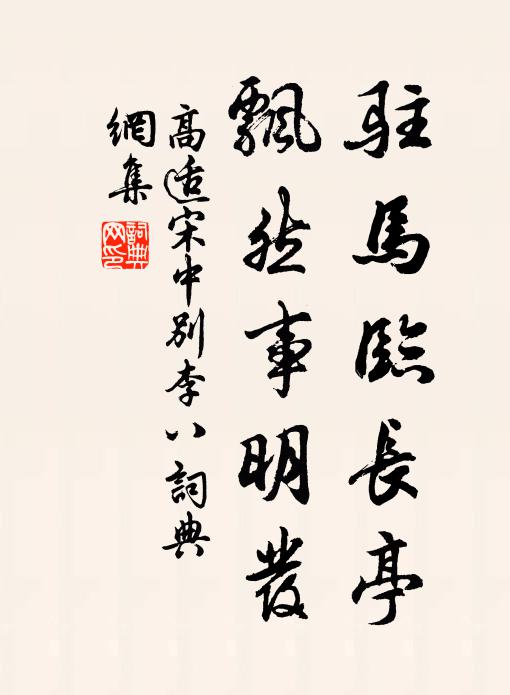 駐馬臨長亭
飄然事明發
高适宋中別李八詞典
網集
詞典
网印